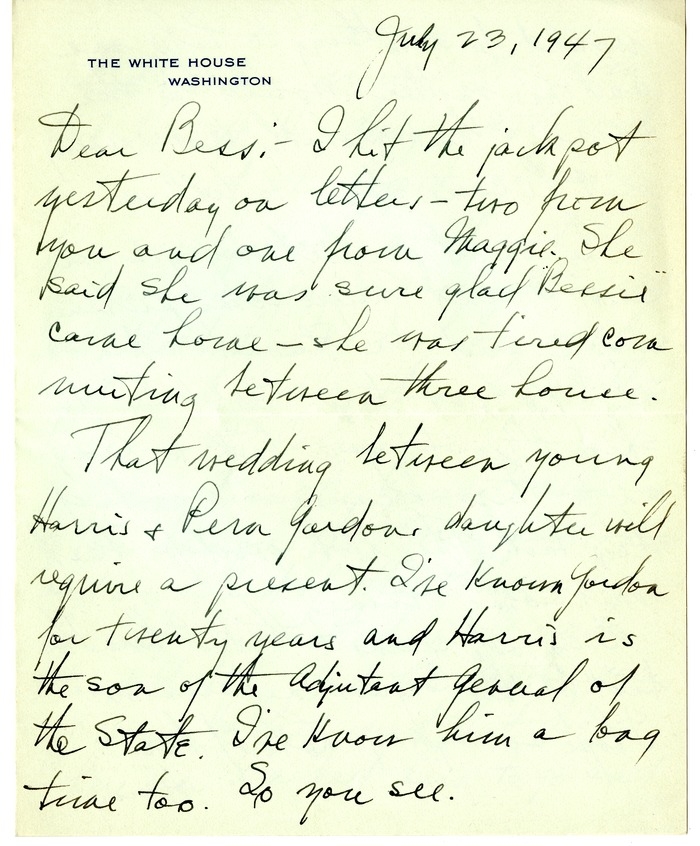 July 23, 1947
THE WHITE HOUSE
WASHINGTON
Dear Bess:- I hit the jackpot
yesterday on letters - two from
you and one from Maggie. She
said she was sure glad "Bessie"
came home - she was tired com
muting between three house.
That wedding between young
Harris & Peru Gordons daughter will
require a present. I've known Gordon
for twenty years and Harris is
the son of the Adjutant General of
the State. I've know him a long
time too. So you see.